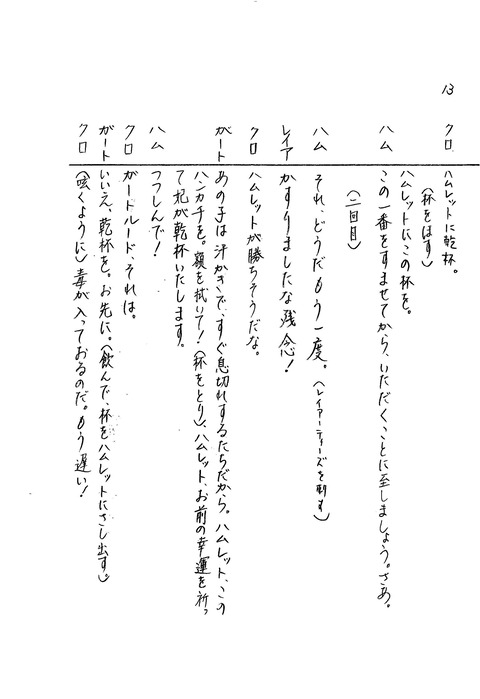 13
クロ ハムレットに乾杯。
(杯をほす)
ハムレットにこの杯を。
ハム この一番をすませてから、いただくことに至しましょう。さあ。
(二回目)
ハム それ、どうだもう一度。(レイアーティーズを刺す)
レイア かすりましたな残念!
クロ ハムレットが勝ちそうだな。
ガート あの子は汗かきで、すぐ息切れするたちだから。ハムレット、この
ハンカチを。額を拭いて!(杯をとり)、ハムレット、お前の幸運を祈っ
て妃が乾杯いたします。
ハム つつしんで!
クロ ガートルード、それは。
ガート いいえ、乾杯を。お先に。(飲んで、杯をハムレットにさし出す。)
クロ (呟くように)毒が入っておるのだ。もう遅い!